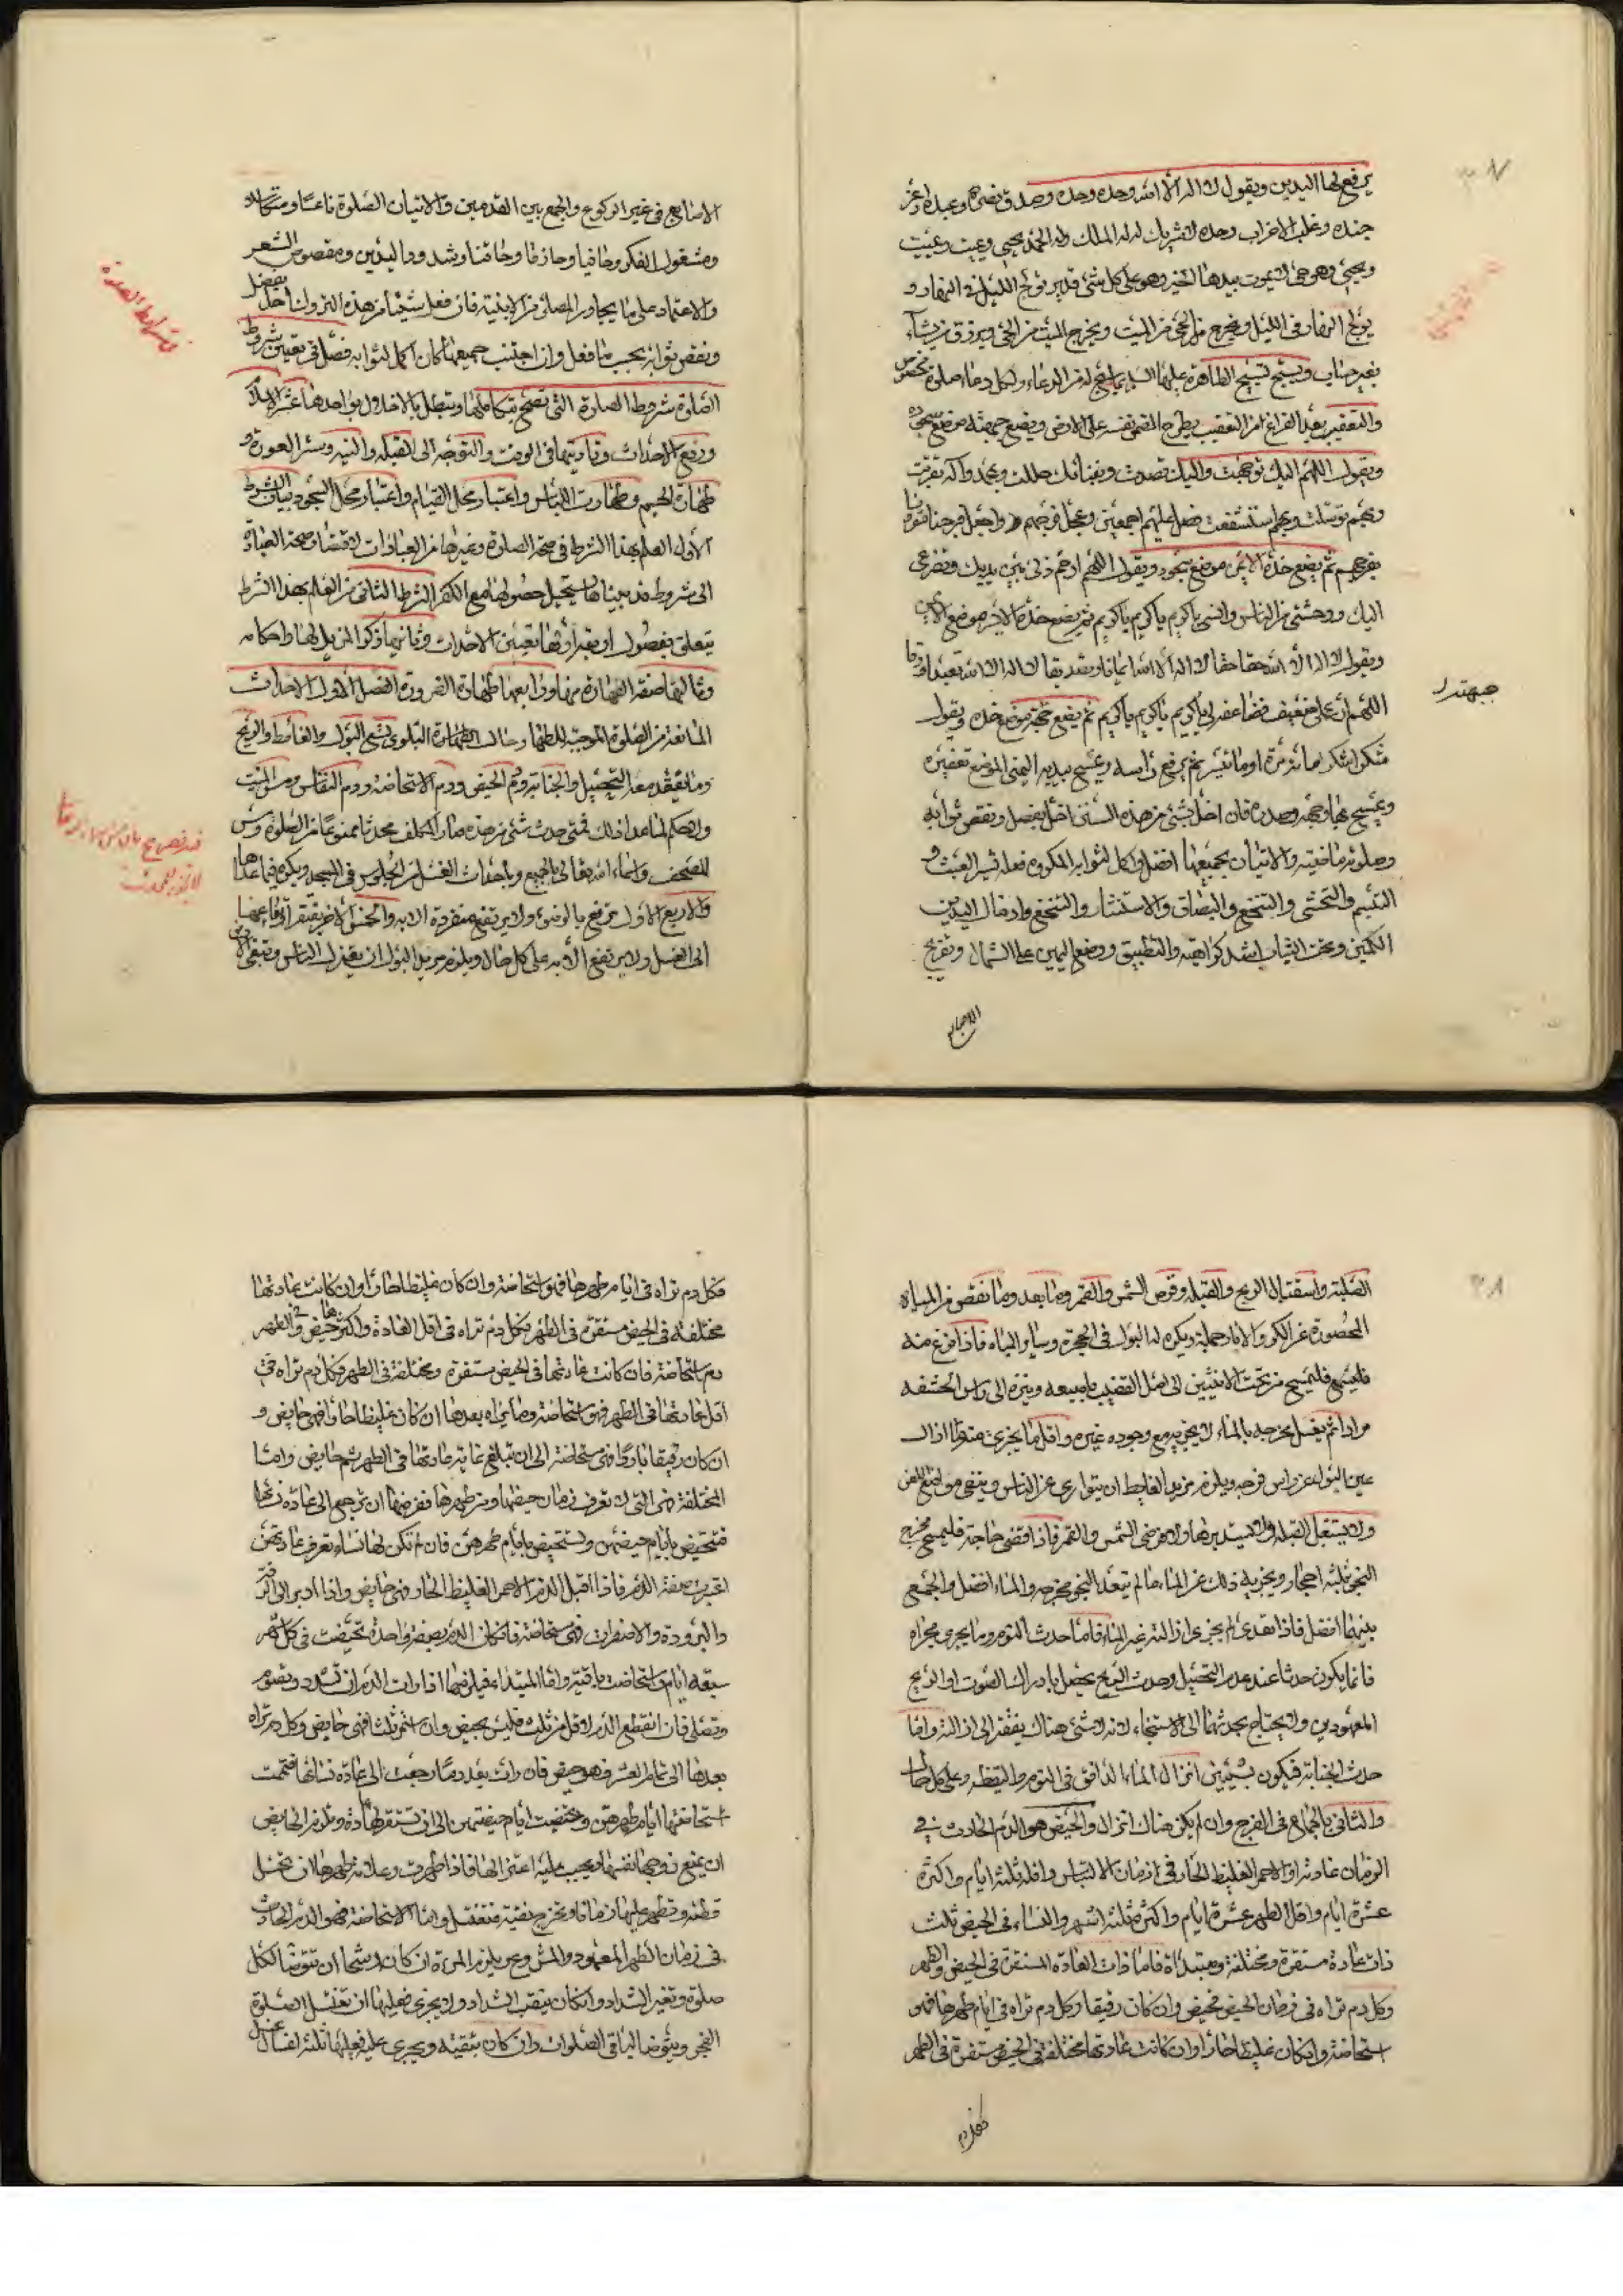 ٣٧
يرفع لها اليدين ويقول لا اله الا الله وحده وحده وصدق وعده ونصر عبده واعز
جنده وغلب الاحزاب وحده لا شريك له له الملك وله الحمد يحيى ويميت ويميت
ويحيى وهو حى لا يموت بيده الخير وهو على كل شئ قدير يولج الليل فى النهار و
يولج النهار فى الليل ويخرج الحى من الميت ويخرج الميت من الحى ويرزق من يشاء
بغير حساب ويسبح تسبيح الطاهرة عليها السلم بما سنح له من الدعاء ولكل دعاء صلوة مخصوص
والتعفير بعد الفراغ من التعقيب يطرح المصلى نفسه على الارض ويضع جبهته موضع سجوده
ويقول اللهم اليك توجهت واليك قصدت وبفنائك حللت وبمحمد واله تقربت
وبهم توسلت وبهم استشفعت فصل عليهم اجمعين وعجل فرجهم واجعل فرجنا مقرونا
بفرجهم ثم يضع خده الايمن موضع سجوده ويقول اللهم ارحم ذلى بين يديك وتضرعى
اليك ووحشتى من الناس وانسى بك يا كريم يا كريم يا كريم ثم يضع خده الايسر موضع الايمن
ويقول لا اله الا الله حقا حقا لا اله الا الله ايمانا وتصديقا لا اله الا الله تعبدا ورقا
اللهم ان عملى ضعيف فضاعفه لى يا كريم يا كريم يا كريم ثم يضع جبهته موضع خده ويقول
شكرا شكرا مائة مرة او ما تيسر ثم يرفع راسه ويمسح بيده اليمنى موضع تعفيره
ويمسح بها وجهه وصدره فان اخل بشئ من هذه السنن اخل بفضل ونقص ثوابه
وصلوته ماضية والاتيان بجميعها افضل واكمل لثوابه المكروه فعله فيها العبث و
التبسم والتمطى والتنخع والبصاق والاستنثار والتنخع وادخال اليدين
الكمين وتحت الثياب اشد كراهية والتطبيق ووضع اليمين على الشمال وتفريج
الاصابع
جبهته
الاصابع فى غير الركوع والجمع بين القدمين والاتيان الصلوة ناعسا ومتكاسلا
ومشغول الفكر وحاقبا وحازقا وحاقنا ومشدود اليدين ومقصوص الشعر
والاعتماد على ما يجاور المصلى من الابنية فان فعل شيئا من هذه التروك اخل بفضل
ونقص ثوابه بحسب ما فعل وان اجتنب جميعها كان اكمل لثوابه فصل فى تعيين شروط
الصلوة شروط الصلوة التى تصح بتكاملها وتبطل بالاخلال بواحدها عشرة الاسلام
ورفع الاحداث وتاديتها فى الوقت والتوجه الى القبلة والنية وستر العورة و
طهارة الجسم وطهارت اللباس واعتبار محل القيام واعتبار محل السجود بيان الشرط
الاول العلم بهذا الشرط فى صحة الصلوة وغيرها من العبادات لاقتضاء صحة العبادة
الى شروط قد بيناها يستحيل حصولها مع الكفر الشرط الثانى من العلم بهذا الشرط
يتعلق بفصول اربعة اولها تعيين الاحداث وثانيها ذكر المزيل لها واحكامه
وثالثها صفة الطهارة منها ورابعها طهارة الضرورة الفصل الاول الاحداث
المانعة من الصلوة الموجبة للطهارة حال الطهارة البلوى تسع البول والغائط والريح
وما يفقد معه التحصيل والجنابة ودم الحيض ودم الاستحاضة ودم النفاس ومس الميت
ولا حكم لما عدا ذلك فمتى حدث شئ من هذه صار المكلف محدثا ممنوعا من الصلوة ومس
المصحف واسماء الله تعالى بالجميع وباحداث الغسل من الجلوس فى المسجد ويكره فيما عداها
والاربع الاول يرتفع بالوضوء ولا يرتفع منفردة الا به والخمس الاخر يفتقر رافعها
الى الغسل ولا يرتفع الا به على كل حال ويلزم مريد البول ان يعتزل الناس ويتقى الارض
شرايط الصلوة
٣٨
الصلبة واستقبال الريح والقبلة وقرص الشمس والقمر وما يعد وما نقص من المياه
المحصورة عن الكر والابار جملة ويكره له البول فى الحجرة وساير المياه فاذا فرغ منه
فليمسح من تحت الانثيين الى اصل القضيب باصبعه وينتره الى راس الحشفة
مرارا ثم يغسل مخرجه بالماء لا يجزيه مع وجوده غيره واقل ما يجزى منه ما ازال
عين البول عن راس فرجه ويلزم مريد الغايط ان يتوارى عن الناس ويتقى مواضع اللعن
ولا يستقبل القبلة ولا يستدبرها ولا قرصى الشمس والقمر فاذا قضى حاجة فليمسح مخرج
النجو بثلثة احجار ويجزيه ذلك عن الماء ما لم يتعد النجو مخرجه والماء افضل والجمع
بينهما افضل فاذا تعدى لم يجز فى ازالته غير الماء فاما حدث النوم وما يجرى مجراه
فانما يكون حدثا عند عدم التحصيل وحدث الريح يحصل بادراك الصوت او الريح
المعهودين ولا يحتاج محدثهما الى الاستنجاء لانه لا شئ هناك يفتقر الى ازالته واما
حدث الجنابة فيكون بشيئين انزال الماء الدافق فى النوم واليقظة وعلى كل حال
والثانى بالجماع فى الفرج وان لم يكن هناك انزال والحيض هو الدم الحادث فى
الزمان عادته او الاحمر الغليظ الحار فى ازمان الالتباس واقله ثلثة ايام واكثره
عشرة ايام واقل الطهر عشرة ايام واكثره ثلثة اشهر والنساء فى الحيض ثلث
ذات عادة مستقرة ومختلفة ومبتداة فاما ذات العادة المستقرة فى الحيض والطهر
وكل دم تراه فى زمان الحيض فحيض وان كان رقيقا وكل دم تراه فى ايام طهرها فهو
استحاضة وان كان غليظا حارا وان كانت عادتها مختلفة فى الحيض مستقرة فى الطهر
فكل دم
فكل دم تراه فى ايام طهرها فهو استحاضة وان كان غليظا حارا وان كانت عادتها
مختلفة فى الحيض مستقرة فى الطهر فكل دم تراه فى اقل العادة واكثرها حيض والطهر
دم استحاضة فان كانت عادتها فى الحيض مستقرة ومختلفة فى الطهر فكل دم تراه فى
اقل عادتها فى الطهر فهو استحاضة وما تراه بعدها ان كان غليظا حارا فهى حايض و
ان كان رقيقا باردا فهى مستحاضة الى ان تبلغ غاية عادتها فى الطهر ثم حايض واما
المختلفة فهى التى لا تعرف زمان حيضها من طهرها ففرضها ان ترجع الى عادة نسائها
فتحيض بايام حيضهن وتستحيض بايام طهرهن فان لم تكن لها نساء تعرف عادتهن
اعتبرت صفة الدم فاذا اقبل الدم الاحمر الغليظ الحار فهى حايض واذا ادبر الى الرقة
والبرودة والاصفرار فهى مستحاضة فان كان الدم بصفة واحدة تحيضت فى كل شهر
سبعة ايام واستحاضت باقيه واما المبتداة فيلزمها اذا رات الدم ان تترك وتصوم
وتصلى فان انقطع الدم لاقل من ثلث فليس بحيض وان استمر ثلثا فهى حايض وكل دم تراه
بعدها الى تمام العشر فهو حيض فان رات بعد دما رجعت الى عادة نسائها فتممت
استحاضتها ايام طهرهن وتحيضت ايام حيضهن الى ان تستقر لها عادة وتلزم الحايض
ان يمنع زوجها نفسها ويجب عليه اعتزالها فاذا طهرت وعلامة طهرها ان تحتمل
قطنة وتظهر عليها زمانا وتخرج نقية فتغتسل واما الاستحاضة فهو الدم الحادث
فى زمان الطهر المعهود والمشروع يلزم المرءة ان كان لا رشحا ان تتوضا لكل
صلوة وتغير الشداد وان كان ينقب الشداد ولا يجرى فعليها ان تغتسل لصلوة
الفجر ويتوضا لباقى الصلوات وان كان ينقبه ويجرى عليه فعليها ثلثة اغسال غسل